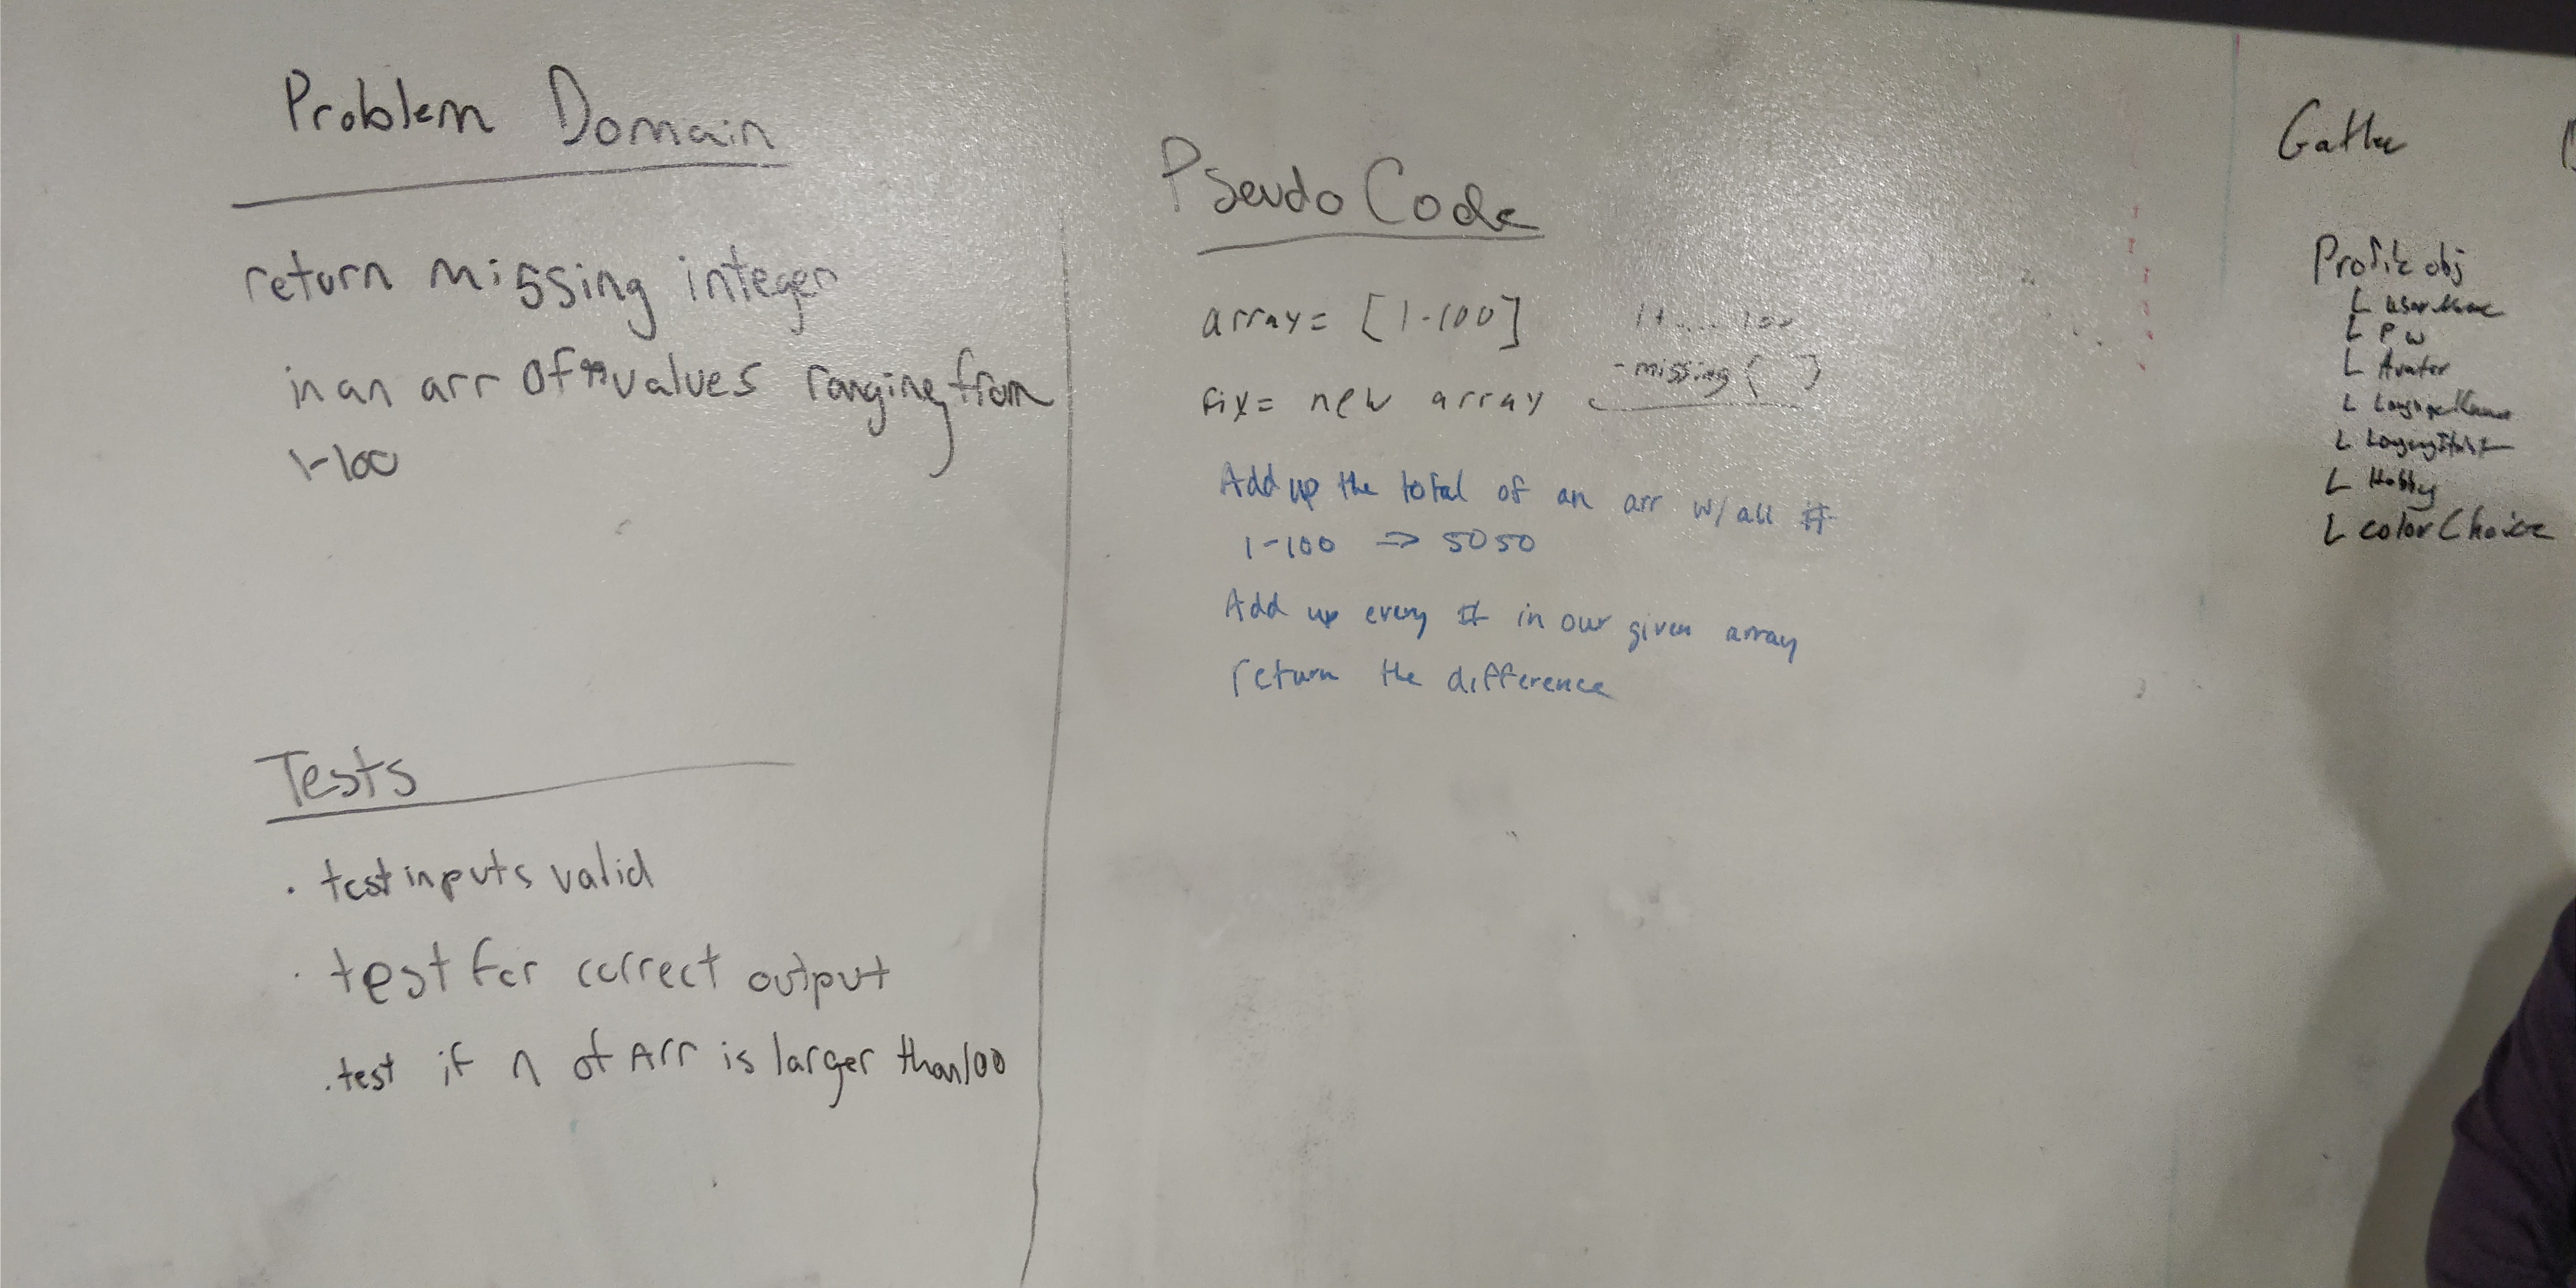 Problem Domain
return missing integer
in an arr of 99 values ranging from
1-100
Tests
· test inputs valid
· test for correct output
. test if n of Arr is larger than 100
Pseudo Code
array = [1-100]
1+....100
- missing ( )
fix = new array
Add up the total of an arr w/ all #
1-100 => 5050
Add up every # in our given array
return the difference
Profile obj
L PW
L Avatar
L Hobby
L colorChoice